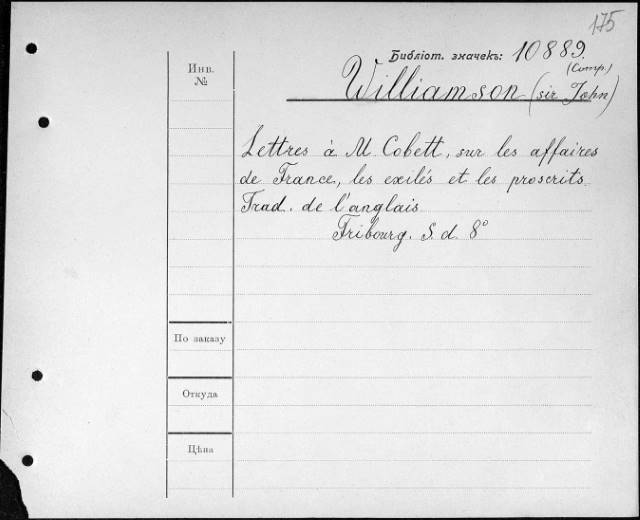 175
Библіот. значекъ: 10889.
(Comp.)
Инв.
№
Williamson (sir John)
Lettres à M. Cobett, sur les affaires
de France, les exilés et les proscrits.
Trad. de l'anglais.
Fribourg. S. d. 8°
По заказу
Откуда
Цѣна